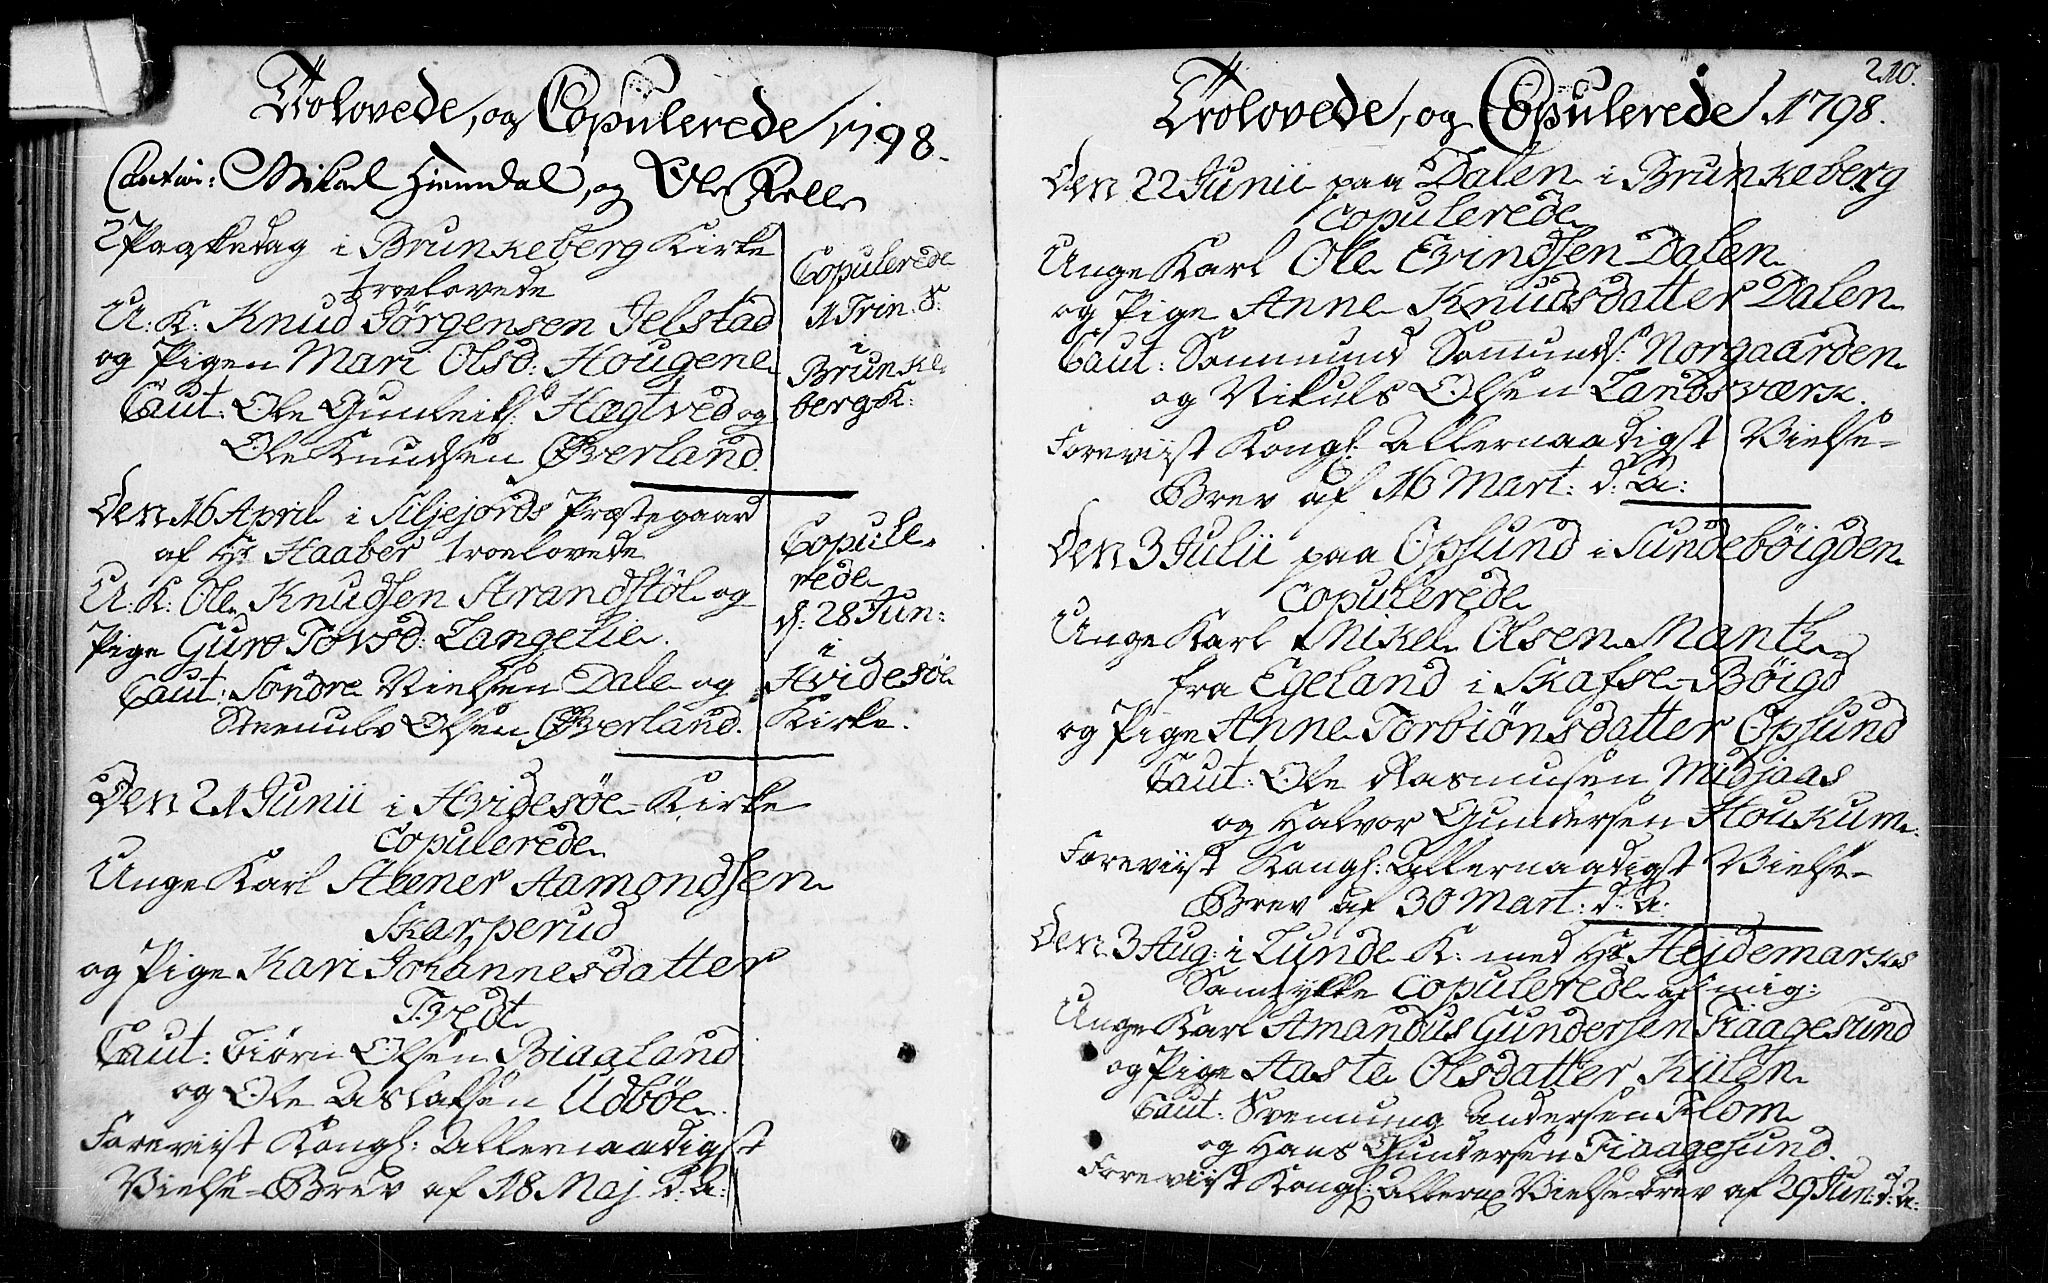 Trolovede, og Copulerede 1798.
Cautio: Mikael Hiemdal, og Ole
2 Paaskedag i Brunkeberg Kirke
troelovede
U: K: Knud Jörgensen Jelstad
og Pigen Mari Olsd: Hougene
Caut: Ole Gunleiks: Hægtved og
Ole Knudsen Øverland.
Copulerede
1 Trin. S:
i
Brunke
berg K:
Den 16 April i Siljejords Præstegaard
af Hr Haaber troelovede
U: K: Ole Knudsen Strandstöl og
Pige Guro Tovsd: Langelie.
Caut: Sondre Nielsen Dale og
Steenulv Olsen Øverland.
Copule
rede
d: 28 Jun:
i
Hvidesöe
Kirke.
Den 21 Junii i Hvidesöe Kirke
Copulerede
Unge Karl Abener Aamondsen
Skarperud
og Pige Kari Johannesdatter
Tvedt
Caut: Biörn Olsen Biaaland
og Ole Aslaksen Udböe.
Foreviist Kongl: Allernaadigst
Vielse-Brev af 18 Maj d: A:
210.
Trolovede, og Copulerede 1798.
Den 22 Junii paa Dalen i Brunkeberg
Copulerede
Unge Karl Ole Evindsen Dalen
og Pige Anne Knudsdatter Dalen
Caut: Sammund Samunds: Norgaarden
og Nikuls Olsen Landsværk.
Foreviist Kongl: Allernaadigst Vielse-
Brev af 16 Mart: d: A:
Den 3 Julii paa Opsund i Sundebøigden
Copulerede
Unge Karl Mikel Olsen Manthe
fra Egeland i Skafse-Bøigd
og Pige Anne Torbiönsdatter Opsund
Caut: Ole Rasmusen Midjaas
og Halvor Gundersen Houkum.
Foreviist Kongl: Allernaadigst Vielse-
Brev af 30 Mart: d: A:
Den 3 Aug: i Lunde K: med Hr Hejdemarks
Samtykke Copulerede af mig:
Unge Karl Amandus Gundersen Fiaagesund
og Pige Aaste Olsdatter Kiilen
Caut: Svennung Andersen Flom
og Hans Gundersen Fiaagesund.
Foreviist Kongl: Allern: Vielse-brev af 29 Jun: d: A: